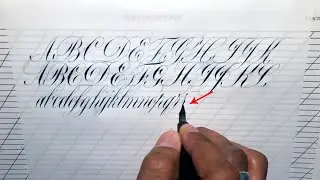 A B C D E F G H I J K
A B C D E F G H I J K L
a b c d e f g h i j k l m n o p q r s